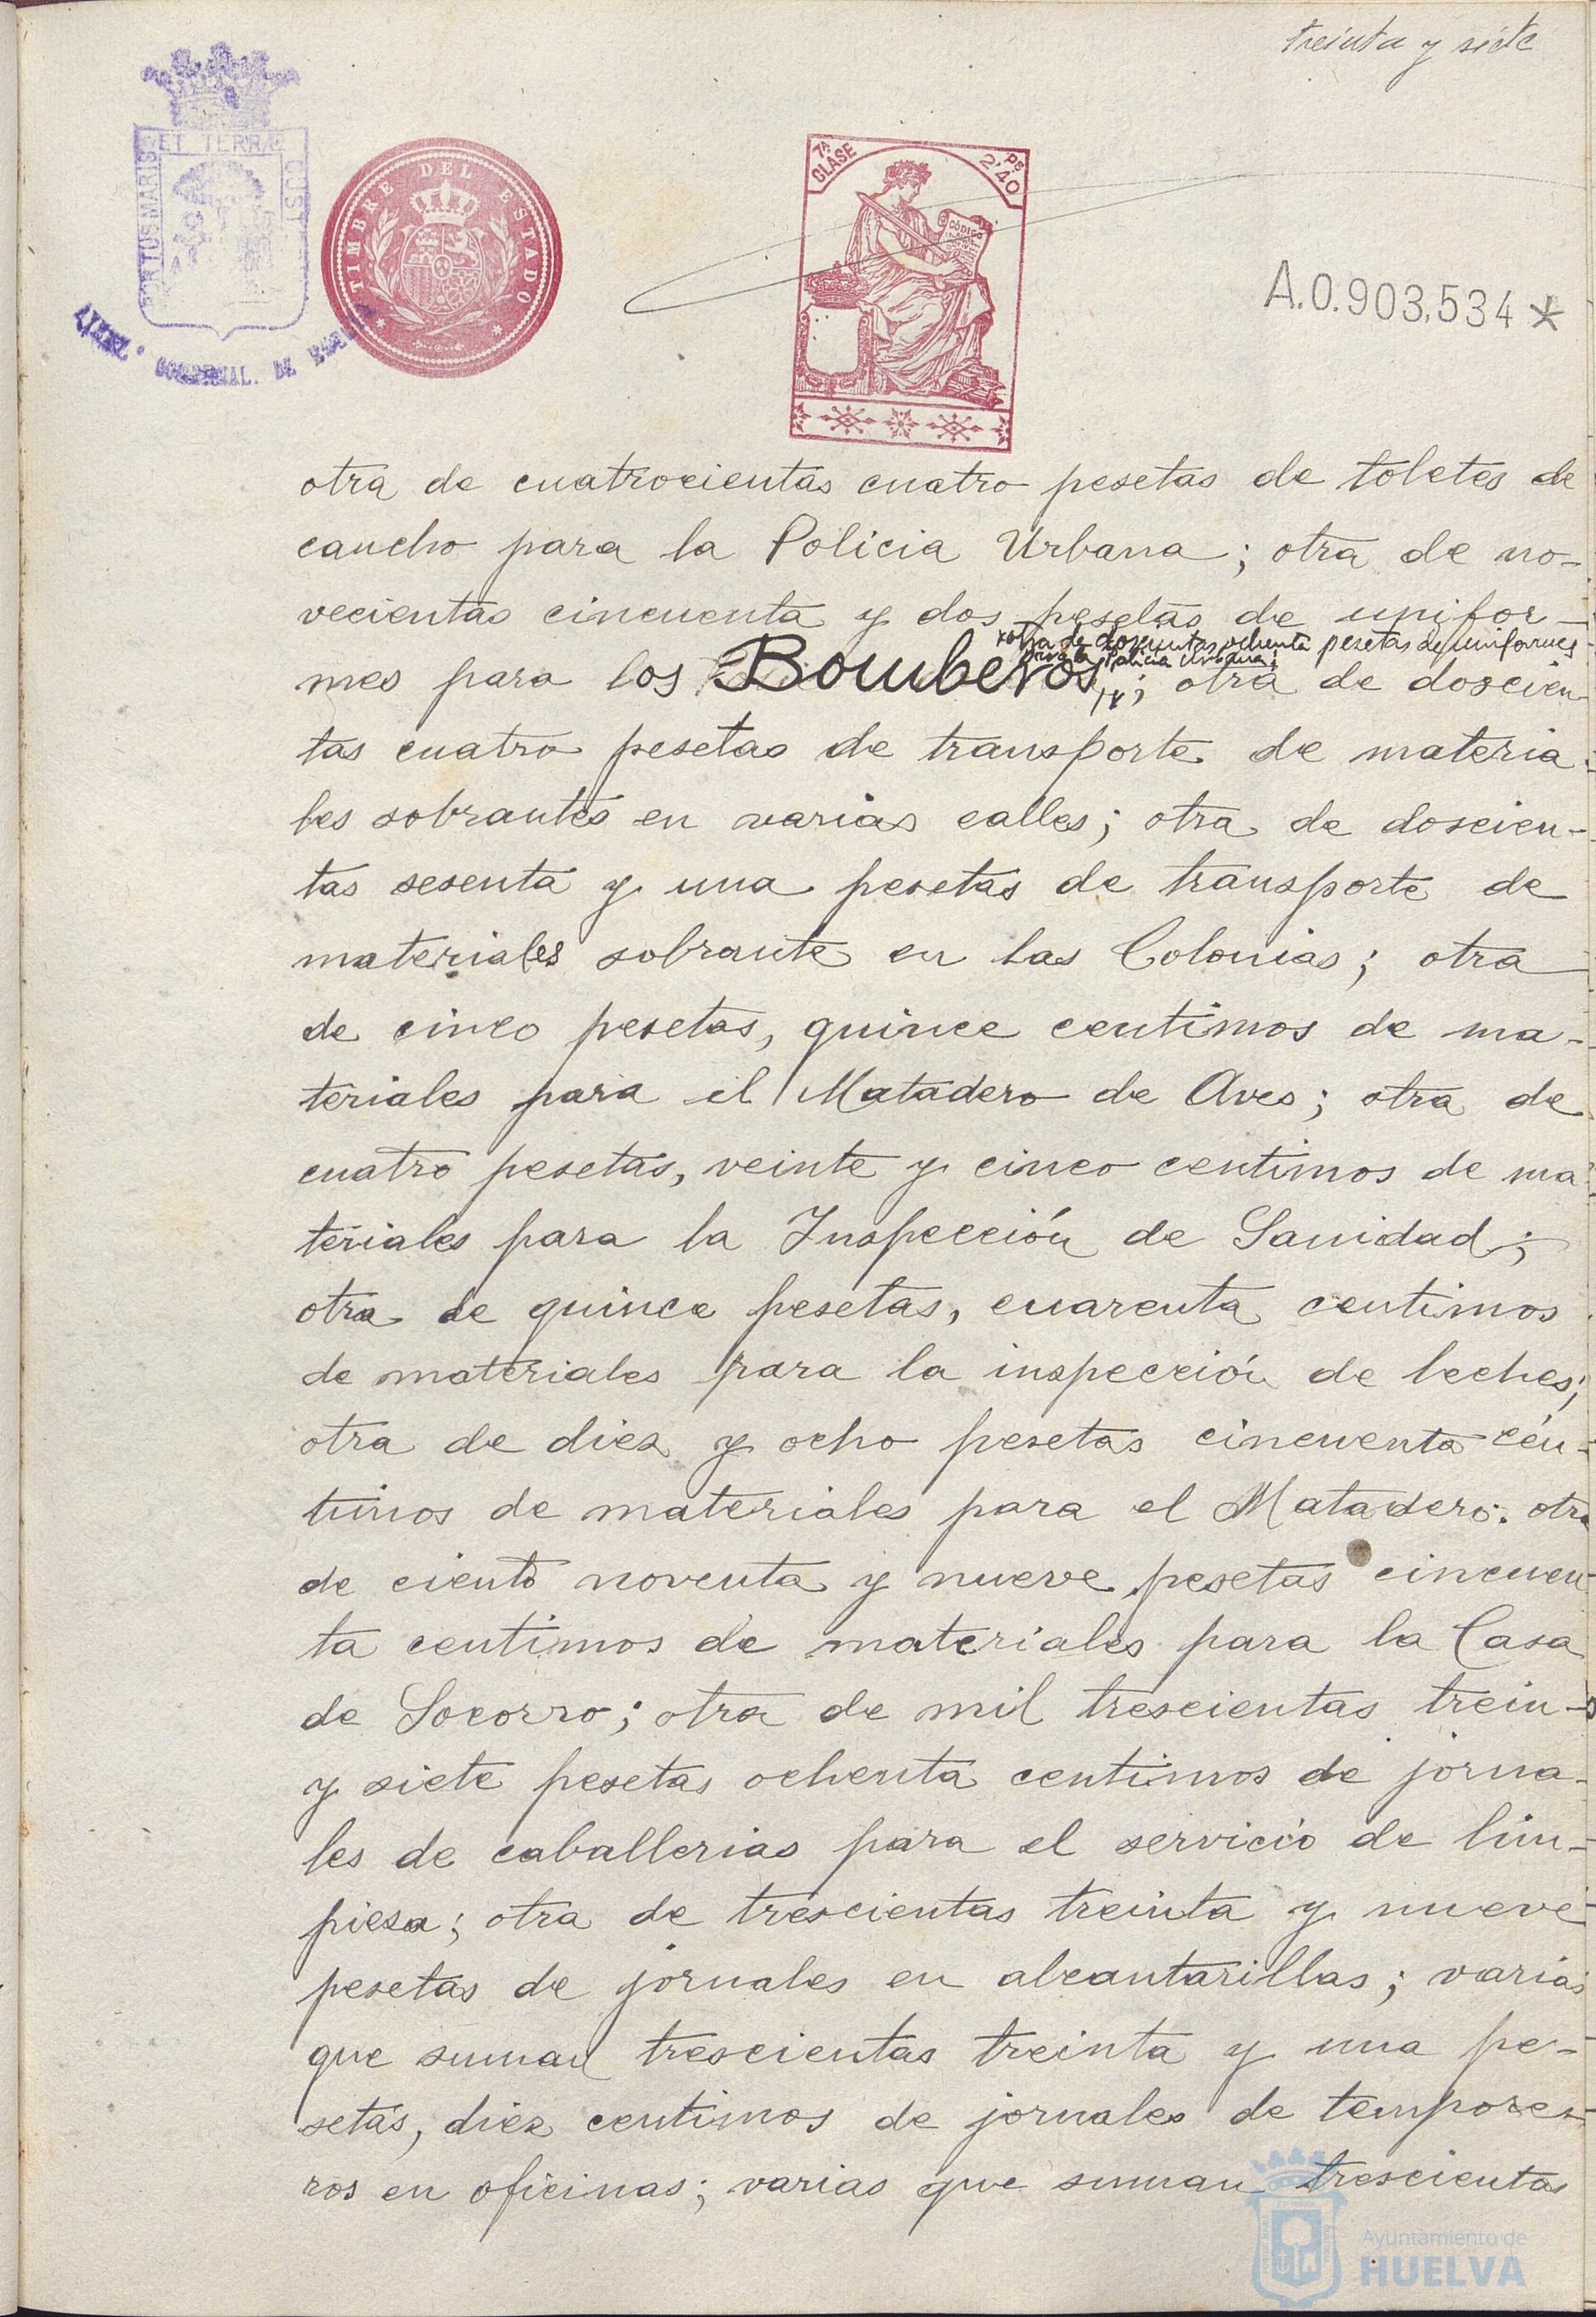 treinta y siete
ET TERRÆ
PORTUS MARIS
CUST
TIMBRE DEL ESTADO
7ª CLASE
2'40 PS
CÓDIGO
A.0.903,534*
otra de cuatrocientas cuatro pesetas de toletes de
caucho para la Policia Urbana; otra de no-
vecientas cincuenta y dos pesetas de unifor-
xotra de doscientas ochenta pesetas de uniformes
para la Policia Urbana;
mes para los Bomberos; otra de doscien-
tas cuatro pesetas de transporte de materia-
les sobrantes en varias calles; otra de doscien-
tas sesenta y una pesetas de transporte de
materiales sobrante en las Colonias; otra
de cinco pesetas, quince centimos de ma-
teriales para el Matadero de Aves; otra de
cuatro pesetas, veinte y cinco centimos de ma-
teriales para la Inspección de Sanidad;
otra de quince pesetas, cuarenta centimos
de materiales para la inspección de leches;
otra de diez y ocho pesetas cincuenta cén-
timos de materiales para el Matadero; otra
de ciento noventa y nueve pesetas cincuen-
ta centimos de materiales para la Casa
de Socorro; otra de mil trescientas trein-
y siete pesetas ochenta centimos de jorna-
les de caballerias para el servicio de lim-
pieza; otra de trescientas treinta y nueve
pesetas de jornales en alcantarillas; varias
que suman trescientas treinta y una pe-
setas, diez centimos de jornales de tempore-
ros en oficinas; varias que suman trescientas
Ayuntamiento de
HUELVA